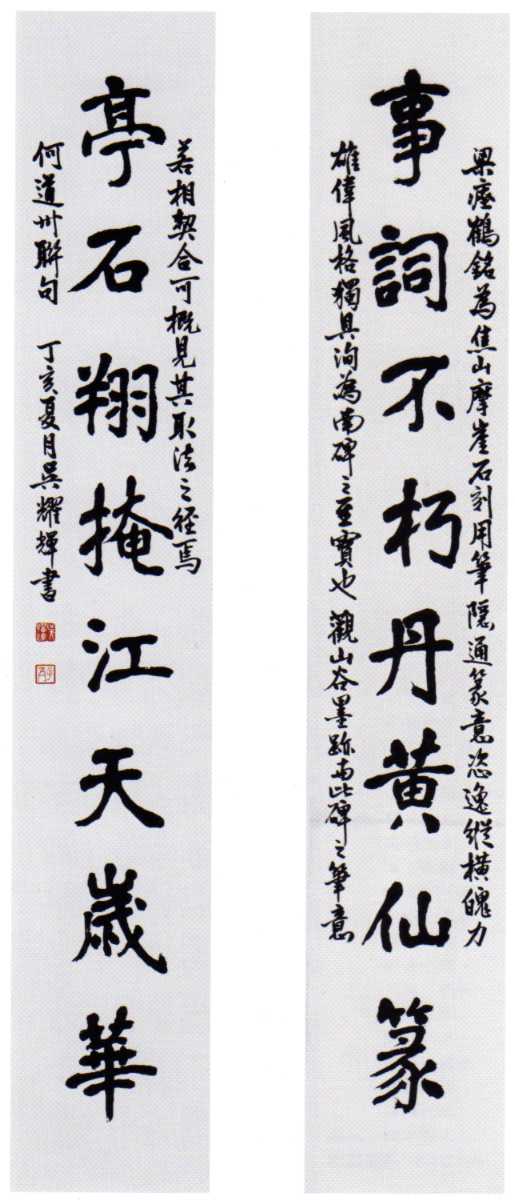 梁瘞鶴銘為焦山摩崖石刻用筆隱通篆意恣逸縱橫魄力
事詞不朽丹黃仙篆
雄偉風格獨具洵為南碑之重寶也觀山谷墨跡與此碑之筆意
若相契合可概見其取法之徑焉
亭石翔掩江天歲華
何道州聯句 丁亥夏月吳耀輝書